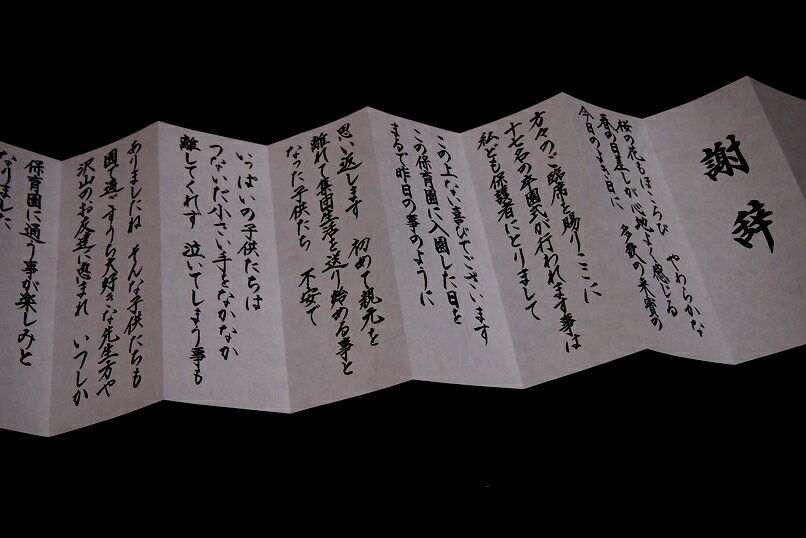 謝辞
桜の花もほころび やわらかな
春の日差しが心地よく感じる
今日のよき日に 多数の来賓の
方々のご臨席を賜りここに
十七名の卒園式が行われます事は
私ども保護者にとりまして
この上ない喜びでございます
この保育園に入園した日を
まるで昨日の事のように
思い返します 初めて親元を
離れて集団生活を送り始める事と
なった子供たち 不安で
いっぱいの子供たちは
つないだ小さい手をなかなか
離してくれず 泣いてしまう事も
ありましたね そんな子供たちも
園で過ごすうち大好きな先生方や
沢山のお友達に恵まれ いつしか
保育園に通う事が楽しみと
なりました